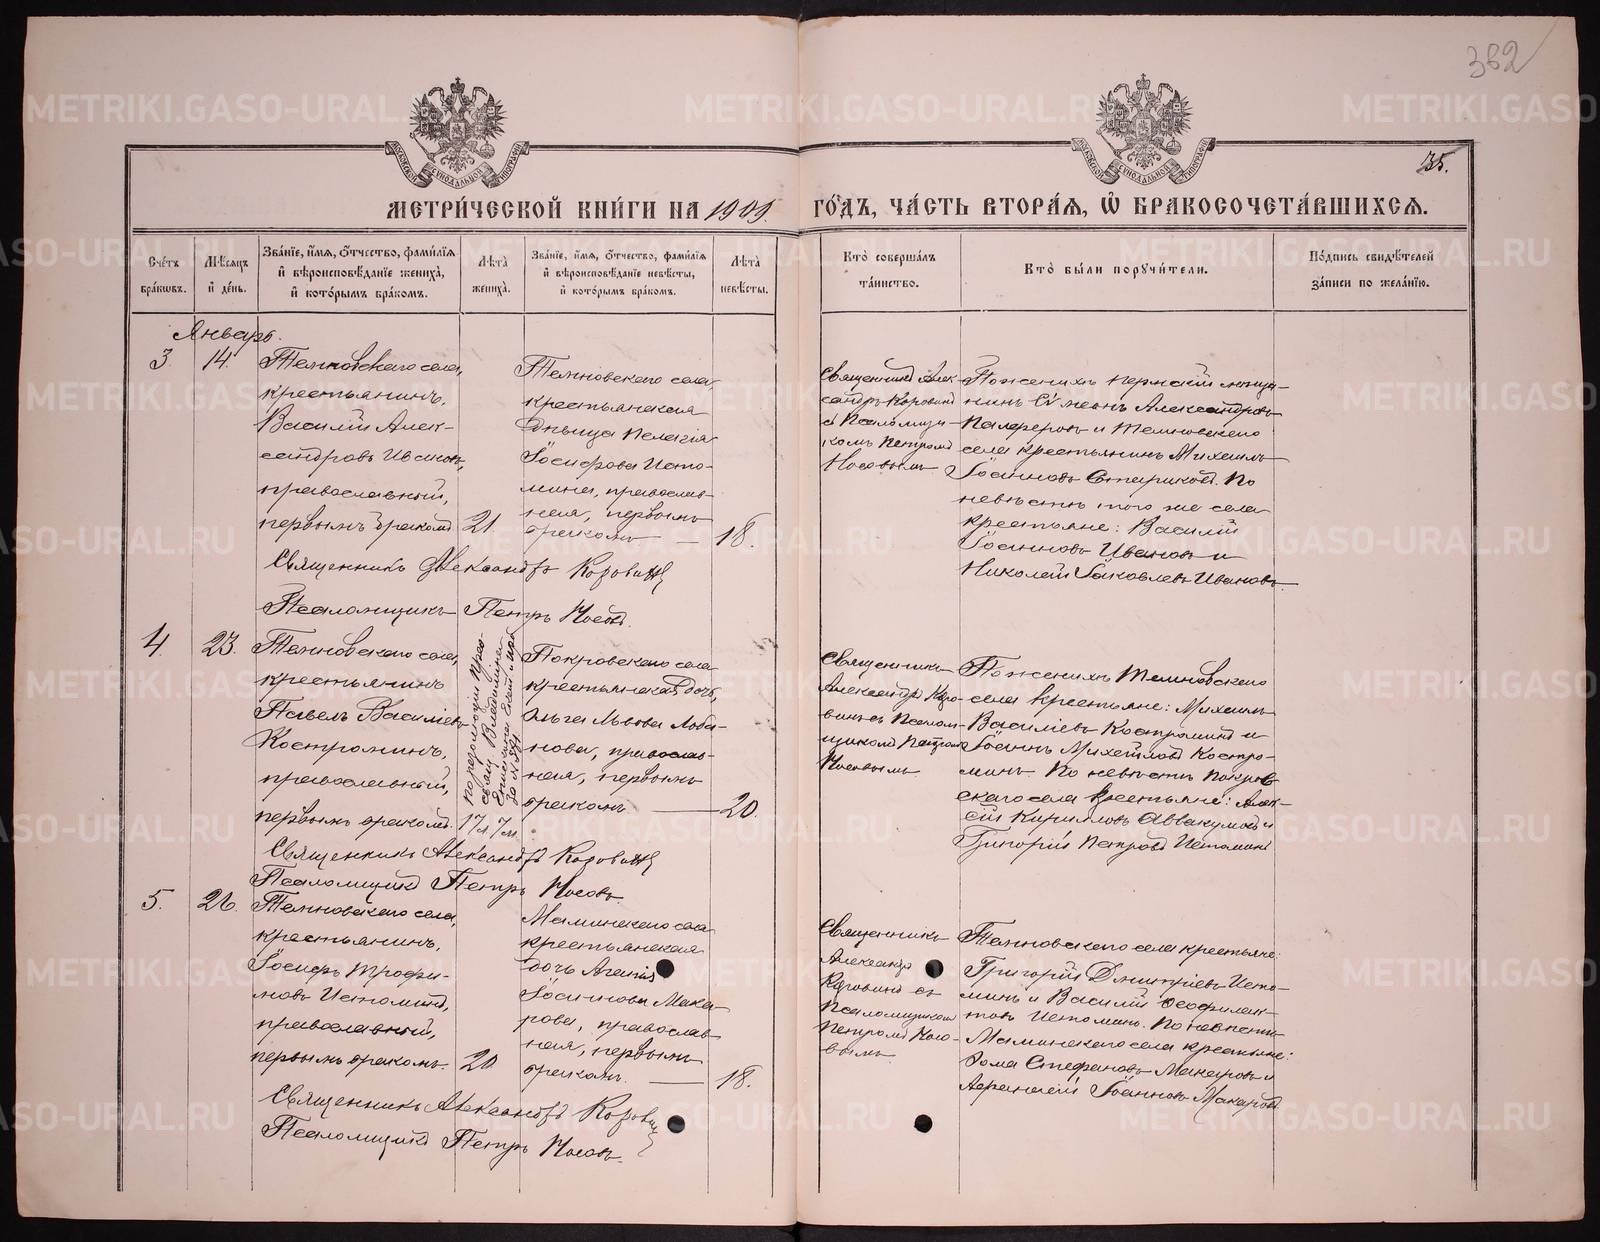 362
35.
МЕТРИ́ЧЕСКОЙ КНИ́ГИ НА 1909 ГО́ДЪ, ЧА́СТЬ ВТОРА́Я, Ѡ БРАКОСОЧЕТА́ВШИХСЯ.
Сче́тъ бра́ковъ.
Мѣ́сяцъ и де́нь.
Зва́нїе, и́мя, о́тчество, фами́лїя и вѣроисповѣ́данїе жениха̀, и кото́рымъ бра́комъ.
Лѣта̀ жениха̀.
Зва́нїе, и́мя, о́тчество, фами́лїя и вѣроисповѣ́данїе невѣ́сты, и кото́рымъ бра́комъ.
Лѣта̀ невѣ́сты.
Кто̀ соверша́лъ та́инство.
Кто̀ бы́ли поручи́тели.
По́дпись свидѣ́телей за́писи по жела́нїю.
Январь.
3.
14.
Темновскаго села,
крестьянинъ,
Василій Алек-
сандровъ Ивановъ,
православный,
первымъ бракомъ
21.
Темновскаго села
крестьянская
дѣвица Пелагія
Іосифова Исто-
мина, православ-
ная, первымъ
бракомъ
18.
Священникъ Алек-
сандръ Коровинъ
съ Псаломщи-
комъ Петромъ
Носовымъ
По женихѣ Пермскій мѣща-
нинъ Сѵмеонъ Александровъ
и Темновскаго
села крестьянинъ Михаилъ
Іоанновъ Стариковъ. По
невѣстѣ того же села
крестьяне: Василій
Іоанновъ Ивановъ и
Николай Іаковлевъ Ивановъ.
Священникъ Александръ Коровинъ
Псаломщикъ Петръ Носовъ.
4.
23.
Темновскаго села,
крестьянинъ
Павелъ Василіевъ
Костроминъ,
православный,
первымъ бракомъ.
по резолюціи Прео-
свящ. Владиміра
Епископа Екат.
17 л. 7 м.
Покровскаго села
крестьянская дочь,
Ольга Львова Лоба-
нова, православ-
ная, первымъ
бракомъ
20.
Священникъ
Александръ Коро-
винъ съ Псалом-
щикомъ Петромъ
Носовымъ
По женихѣ Темновскаго
села крестьяне: Михаилъ
Василіевъ Костроминъ и
Іоаннъ Михаиловъ Костро-
минъ. По невѣстѣ Покров-
скаго села крестьяне: Алек-
сѣй Кирилловъ Аввакумовъ и
Григорій Петровъ Истоминъ
Священникъ Александръ Коровинъ
Псаломщикъ Петръ Носовъ.
5.
26.
Темновскаго села,
крестьянинъ,
Іосифъ Трофи-
мовъ Истоминъ,
православный,
первымъ бракомъ.
20
Маминскаго села
крестьянская
дочь Агапія
Іосифова Мака-
рова, православ-
ная, первымъ
бракомъ.
18.
Священникъ
Александръ
Коровинъ съ
Псаломщикомъ
Петромъ Носо-
вымъ
Темновскаго села крестьяне:
Григорій Дмитріевъ Исто-
минъ и Василій Ѳеофилак-
товъ Истоминъ. По невѣстѣ
Маминскаго села крестьяне:
Ѳома Стефановъ Макаровъ и
Аѳанасій Іоанновъ Макаровъ
Священникъ Александръ Коровинъ
Псаломщикъ Петръ Носовъ.
METRIKI.GASO-URAL.RU